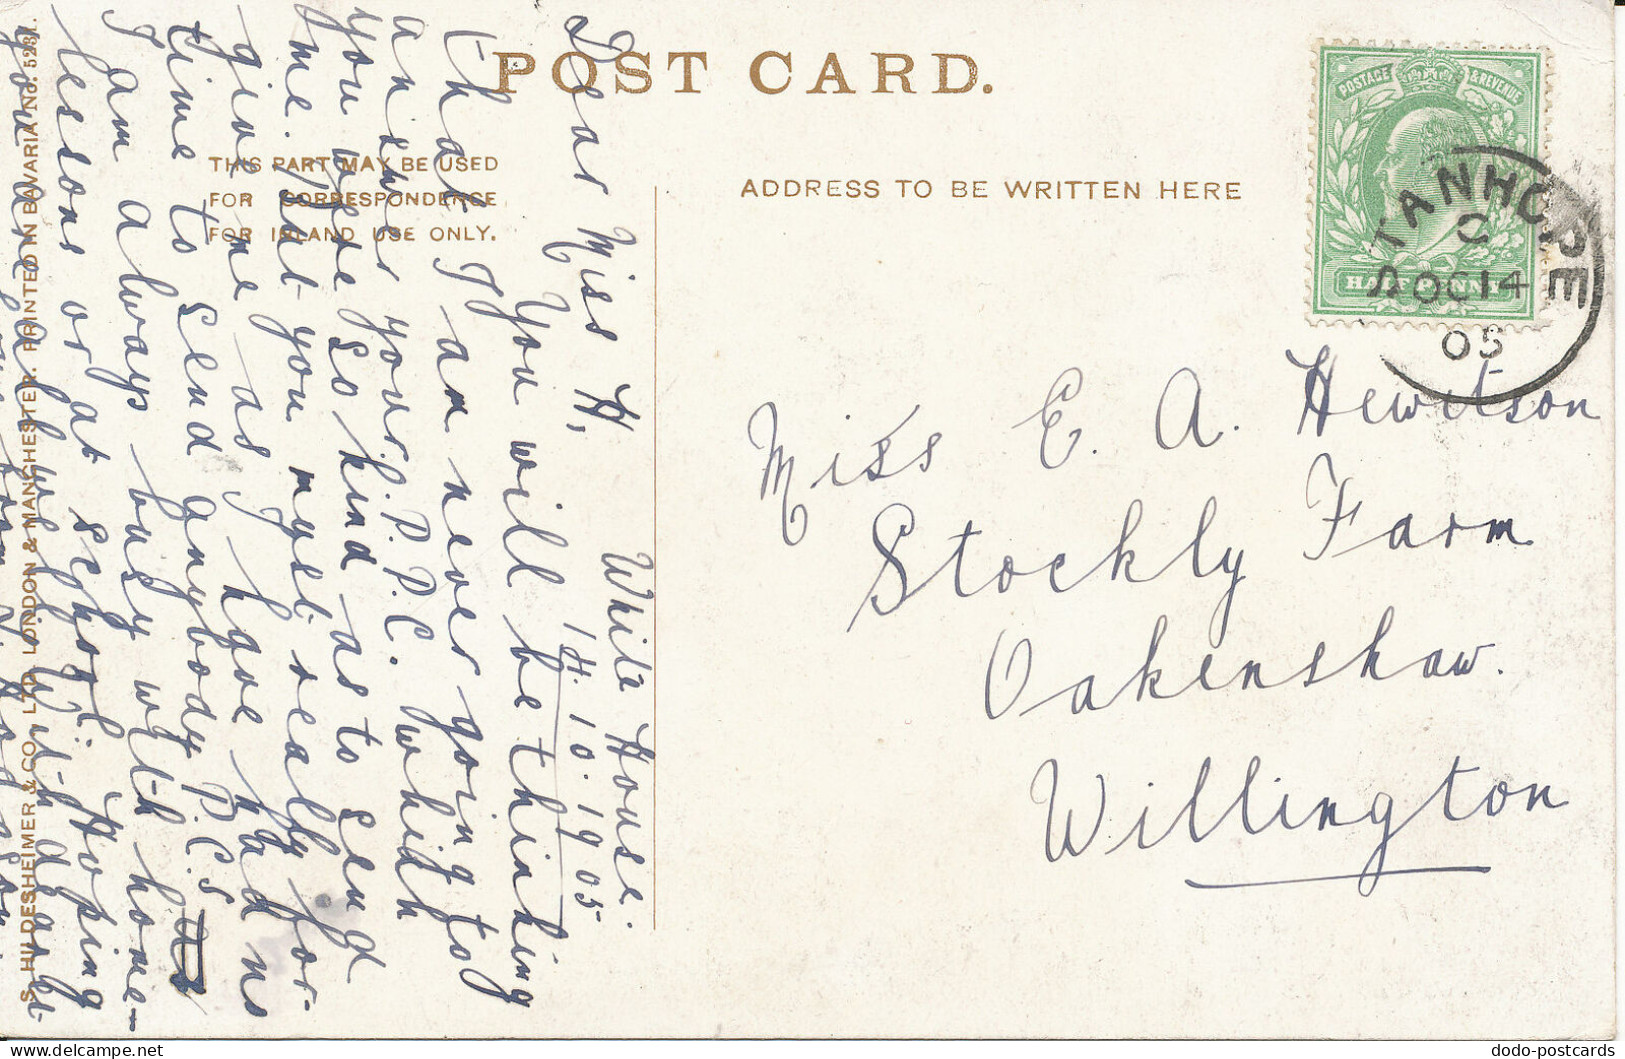 POST CARD.
THIS PART MAY BE USED
FOR CORRESPONDENCE
FOR INLAND USE ONLY.
ADDRESS TO BE WRITTEN HERE
POSTAGE & REVENUE
HALF PENNY
STANHOPE
C
OC 14
05
Miss E. A. Hewitson
Stockly Farm
Oakenshaw.
Willington
White House.
14.10.1905
Dear Miss H,
You will be thinking
that I am never going to
answer your P.P.C. which
you were so kind as to send
me. But you must really for-
give me as I have had no
time to send anybody P.C.S
I am always busy with home-
lessons or at school. Hoping
you are all well. With dearest
S. HILDESHEIMER & CO., LTD. LONDON & MANCHESTER. PRINTED IN BAVARIA No. 5231.
dodo-postcards